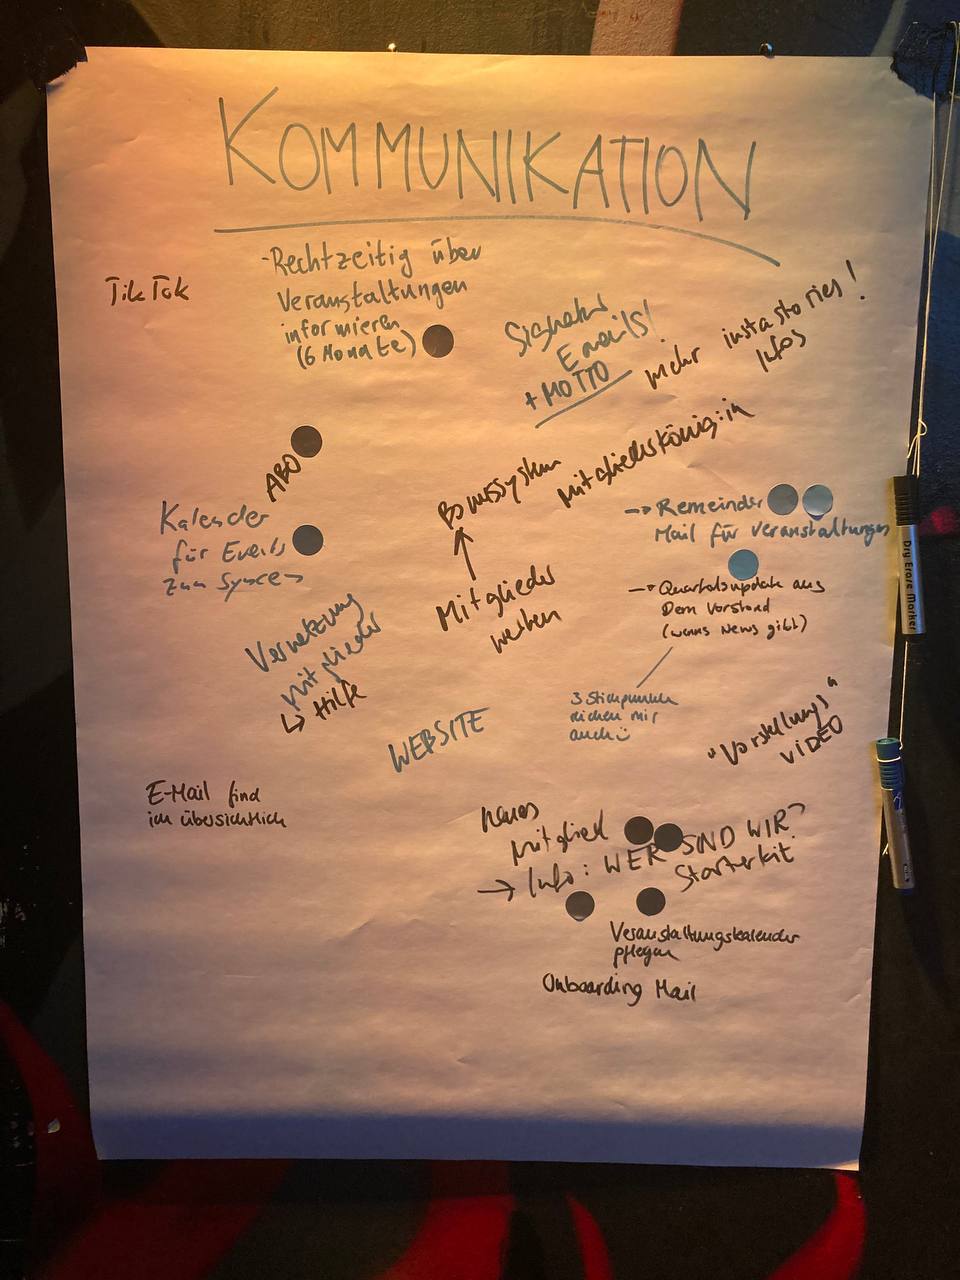 KOMMUNIKATION
-Rechtzeitig über
Veranstaltungen
informieren
(6 Monate)
TikTok
Signatur
Emails!
+ MOTTO
mehr instastories!
Infos
ABO
Kalender
für Events
zum Syncen
Bonussystem
Mitgliedskönig:in
Mitglieder
werben
→ Remeinder
Mail für Veranstaltungen
→ Quartalsupdate aus
Dem Vorstand
(wenns News gibt)
3 Stichpunkte
reichen mir
auch
Vernetzung
Mitglieder
↳ Hilfe
WEBSITE
"Vorstellungs"
VIDEO
E-Mail find
ich übersichtlich
neues
Mitglied
→ Info: WER SIND WIR?
Starterkit
Veranstaltungskalender
pflegen
Onboarding Mail
Dry Erase Marker